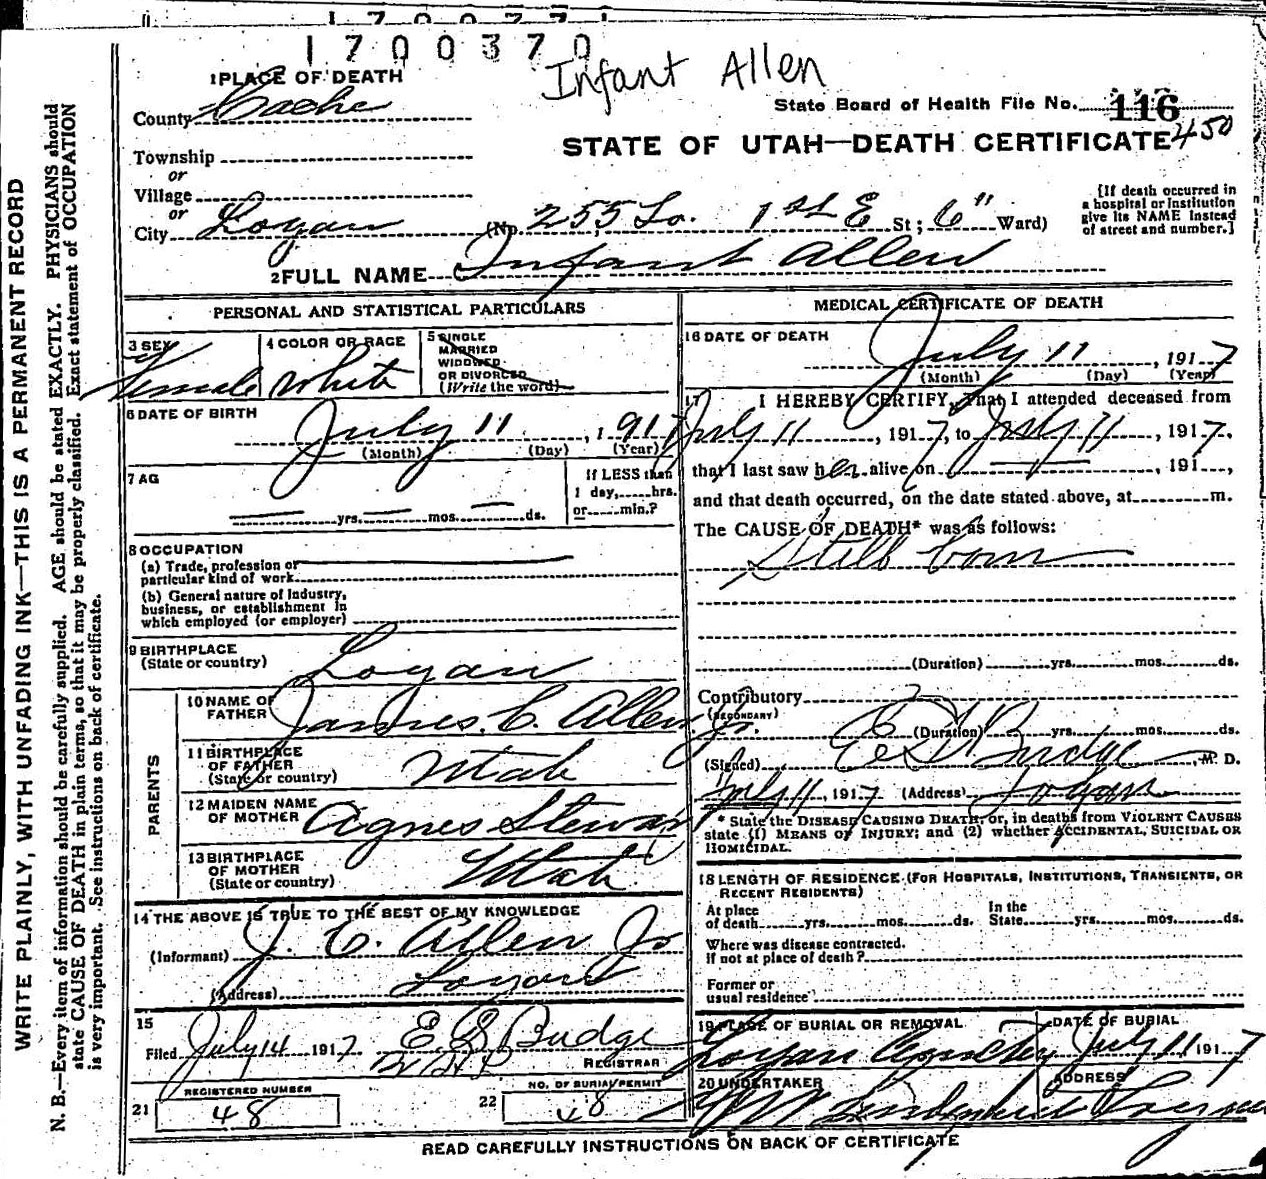 1700370
Infant Allen
1 PLACE OF DEATH
County Cache
State Board of Health File No. 116
450
STATE OF UTAH—DEATH CERTIFICATE
Township
or
Village
or
City Logan (No. 255 So. 1st E St; 6" Ward)
[If death occurred in
a hospital or institution
give its NAME instead
of street and number.]
2 FULL NAME Infant Allen
PERSONAL AND STATISTICAL PARTICULARS
3 SEX Female
4 COLOR OR RACE White
5 SINGLE
MARRIED
WIDOWED
OR DIVORCED
(Write the word)
6 DATE OF BIRTH
July 11, 1917
(Month) (Day) (Year)
7 AG
yrs. mos. ds.
If LESS than
1 day, hrs.
or min.?
8 OCCUPATION
(a) Trade, profession or
particular kind of work
(b) General nature of industry,
business, or establishment in
which employed (or employer)
9 BIRTHPLACE
(State or country) Logan
PARENTS
10 NAME OF
FATHER James. C. Allen Jr.
11 BIRTHPLACE
OF FATHER
(State or country) Utah
12 MAIDEN NAME
OF MOTHER Agnes Stewart
13 BIRTHPLACE
OF MOTHER
(State or country) Utah
14 THE ABOVE IS TRUE TO THE BEST OF MY KNOWLEDGE
(Informant) J. C. Allen Jr
(Address) Logan
15
Filed July 14 1917 E. S Budge
REGISTRAR
REGISTERED NUMBER
21 48
NO. OF BURIAL PERMIT
22 48
MEDICAL CERTIFICATE OF DEATH
16 DATE OF DEATH
July 11, 1917
(Month) (Day) (Year)
17 I HEREBY CERTIFY, That I attended deceased from
July 11, 1917, to July 11, 1917,
that I last saw her alive on , 191 ,
and that death occurred, on the date stated above, at m.
The CAUSE OF DEATH* was as follows:
Still born
(Duration) yrs. mos. ds.
Contributory
(SECONDARY)
(Duration) yrs. mos. ds.
(Signed) Budge, M. D.
July 11, 1917 (Address) Logan
* State the DISEASE CAUSING DEATH, or, in deaths from VIOLENT CAUSES
state (1) MEANS OF INJURY; and (2) whether ACCIDENTAL, SUICIDAL OR
HOMICIDAL.
18 LENGTH OF RESIDENCE (FOR HOSPITALS, INSTITUTIONS, TRANSIENTS, OR
RECENT RESIDENTS)
At place
of death yrs. mos. ds.
In the
State yrs. mos. ds.
Where was disease contracted.
if not at place of death?
Former or
usual residence
19 PLACE OF BURIAL OR REMOVAL
Logan Cemetery
DATE OF BURIAL
July 11 1917
20 UNDERTAKER
ADDRESS
Logan
READ CAREFULLY INSTRUCTIONS ON BACK OF CERTIFICATE
WRITE PLAINLY, WITH UNFADING INK—THIS IS A PERMANENT RECORD
N. B.—Every item of information should be carefully supplied. AGE should be stated EXACTLY. PHYSICIANS should
state CAUSE OF DEATH in plain terms, so that it may be properly classified. Exact statement of OCCUPATION
is very important. See instructions on back of certificate.